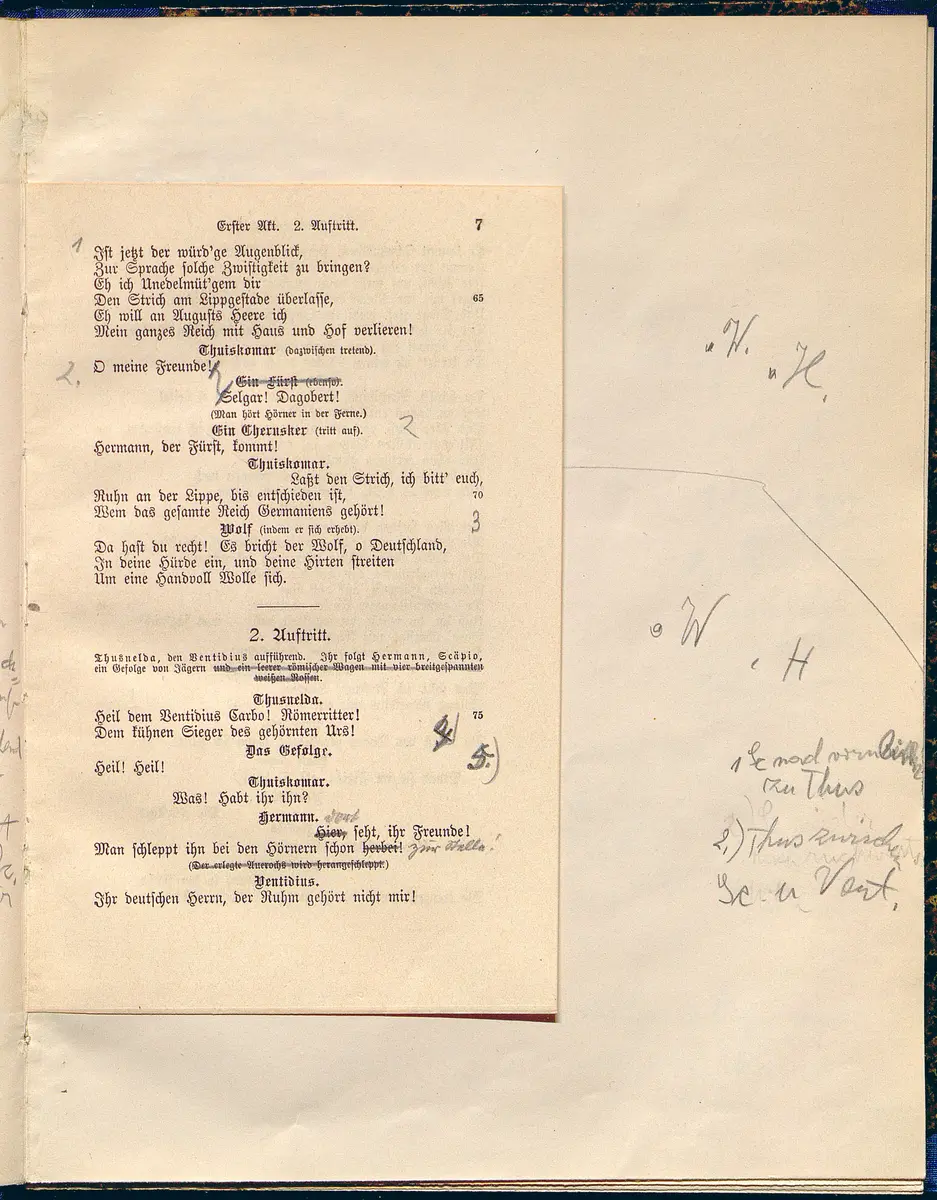 Erster Akt. 2. Auftritt. 7
1
Ist jetzt der würd'ge Augenblick,
Zur Sprache solche Zwistigkeit zu bringen?
Eh ich Unedelmüt'gem dir
Den Strich am Lippgestade überlasse, 65
Eh will an Augusts Heere ich
Mein ganzes Reich mit Haus und Hof verlieren!
Thuiskomar (dazwischen tretend).
2. O meine Freunde!
Ein Fürst (ebenso).
Selgar! Dagobert!
(Man hört Hörner in der Ferne.)
Ein Cherusker (tritt auf). 2
Hermann, der Fürst, kommt!
Thuiskomar.
Laßt den Strich, ich bitt' euch,
Ruhn an der Lippe, bis entschieden ist, 70
Wem das gesamte Reich Germaniens gehört!
Wolf (indem er sich erhebt). 3
Da hast du recht! Es bricht der Wolf, o Deutschland,
In deine Hürde ein, und deine Hirten streiten
Um eine Handvoll Wolle sich.
2. Auftritt.
Thusnelda, den Ventidius aufführend. Ihr folgt Hermann, Scäpio,
ein Gefolge von Jägern und ein leerer römischer Wagen mit vier breitgespannten
weißen Rossen.
Thusnelda.
Heil dem Ventidius Carbo! Römerritter! 75
Dem kühnen Sieger des gehörnten Urs! 4
Das Gefolge. 5.)
Heil! Heil!
Thuiskomar.
Was! Habt ihr ihn?
Hermann. dort
Hier, seht, ihr Freunde!
Man schleppt ihn bei den Hörnern schon herbei! zur Stelle!
(Der erlegte Auerochs wird herangeschleppt.)
Ventidius.
Ihr deutschen Herrn, der Ruhm gehört nicht mir!
W.
H.
W
H
1 Sc nach vorn
zu Thus
2.) Thus zwisch
Sc u Vent.